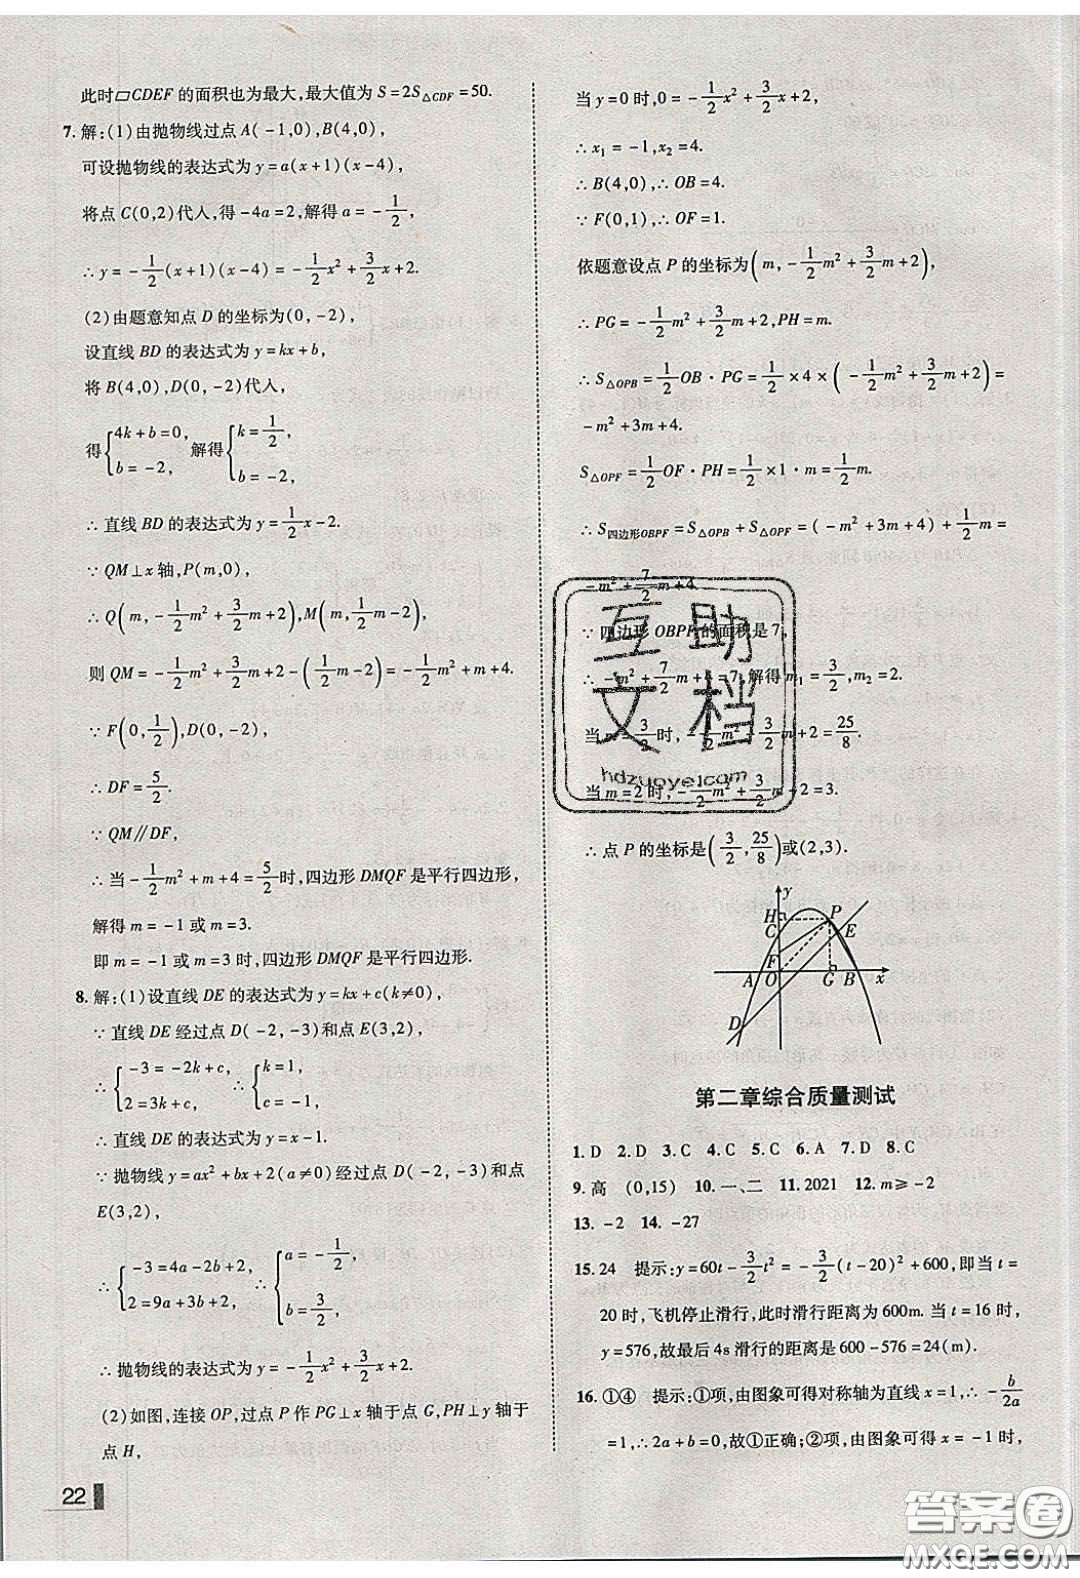 此时▱CDEF 的面积也为最大,最大值为 S=2S△CDF=50.
7. 解:(1)由抛物线过点 A(-1,0),B(4,0),
可设抛物线的表达式为 y=a(x+1)(x-4),
将点 C(0,2)代人,得 -4a=2,解得 a=-1/2,
∴ y=-1/2(x+1)(x-4)=-1/2x²+3/2x+2.
(2)由题意知点 D 的坐标为(0,-2),
设直线 BD 的表达式为 y=kx+b,
将 B(4,0),D(0,-2)代人,
得{4k+b=0, b=-2, 解得{k=1/2, b=-2,
∴ 直线 BD 的表达式为 y=1/2x-2.
∵ QM⊥x 轴,P(m,0),
∴ Q(m,-1/2m²+3/2m+2),M(m,1/2m-2),
则 QM=-1/2m²+3/2m+2-(1/2m-2)=-1/2m²+m+4.
∵ F(0,1/2),D(0,-2),
∴ DF=5/2.
∵ QM∥DF,
∴ 当-1/2m²+m+4=5/2时,四边形 DMQF 是平行四边形,
解得 m=-1 或 m=3.
即 m=-1 或 m=3 时,四边形 DMQF 是平行四边形.
8. 解:(1)设直线 DE 的表达式为 y=kx+c(k≠0),
∵ 直线 DE 经过点 D(-2,-3)和点 E(3,2),
∴ {-3=-2k+c, 2=3k+c, ∴ {k=1, c=-1,
∴ 直线 DE 的表达式为 y=x-1.
∵ 抛物线 y=ax²+bx+2(a≠0)经过点 D(-2,-3)和点
E(3,2),
∴ {-3=4a-2b+2, 2=9a+3b+2, ∴ {a=-1/2, b=3/2,
∴ 抛物线的表达式为 y=-1/2x²+3/2x+2.
(2)如图,连接 OP,过点 P 作 PG⊥x 轴于点 G,PH⊥y 轴于
点 H,
22
当 y=0 时,0=-1/2x²+3/2x+2,
∴ x₁=-1,x₂=4.
∴ B(4,0),∴ OB=4.
∵ F(0,1),∴ OF=1.
依题意设点 P 的坐标为(m,-1/2m²+3/2m+2),
∴ PG=-1/2m²+3/2m+2,PH=m.
∴ S△OPB=1/2OB·PG=1/2×4×(-1/2m²+3/2m+2)=
-m²+3m+4.
S△OPF=1/2OF·PH=1/2×1·m=1/2m.
∴ S四边形OBPF=S△OPB+S△OPF=(-m²+3m+4)+1/2m=
-m²+7/2m+4.
∵ 四边形 OBPF的面积是 7,
∴ -m²+7/2m+4=7,解得 m₁=3/2,m₂=2.
当 m=3/2时,-1/2m²+3/2m+2=25/8.
当 m=2 时,-1/2m²+3/2m+2=3.
∴ 点 P 的坐标是(3/2,25/8)或(2,3).
y
H P
C E
F
A O G B x
D
第二章综合质量测试
1. D 2. D 3. C 4. C 5. C 6. A 7. D 8. C
9. 高 (0,15) 10. 一、二 11. 2021 12. m≥-2
13. -2 14. -27
15. 24 提示:y=60t-3/2t²=-3/2(t-20)²+600,即当 t=
20 时,飞机停止滑行,此时滑行距离为 600m. 当 t=16 时,
y=576,故最后 4s 滑行的距离是 600-576=24(m).
16. ①④ 提示:①项,由图象可得对称轴为直线 x=1,∴ -b/2a
=1,∴ 2a+b=0,故①正确;②项,由图象可得 x=-1 时,
互助
文档
hdzuoye.com
答案圈
MXQE.COM